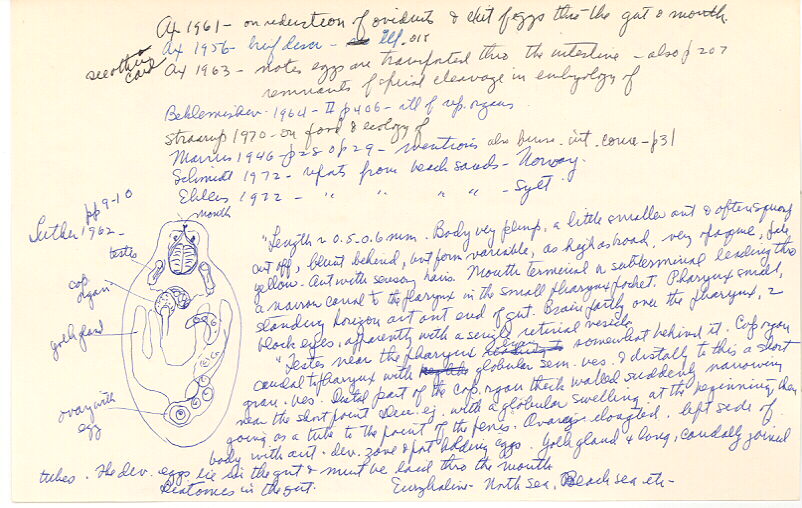 Ax 1961 - on reduction of oviducts & exit of eggs thru the gut & mouth
Ax 1956 - brief descr - ill. 011
see other card
Ax 1963 - notes eggs are transported thru the intestine - also p 207
remnants of spiral cleavage in embryology of
Beklemishev - 1964 - II p 406 - ill of rep. organs
Straarup 1970 - on food & ecology of
Marcus 1946 - p 28 & p 29 - mentions also bursa - int. conn - p 31
Schmidt 1972 - reports from beach sands - Norway.
Ehlers 1972 - " " " " - Sylt.
pp 9-10
Luther 1962 -
mouth
testis
cop organ
yolk gland
ovary with egg
"Length ~ 0.5-0.6 mm. Body very plump, a little smaller ant & often squarely
cut off, blunt behind, but form variable, as high as broad, very opaque, pale
yellow. Ant with sensory hairs. Mouth terminal or subterminal leading thru
a narrow canal to the pharynx in the small pharynx pocket. Pharynx small,
standing horizon at ant end of gut. Brain partly over the pharynx, 2
black eyes, apparently with a single retinal vesicle
"Testes near the pharynx somewhat behind it. Cop organ
caudal to pharynx with globular sem. ves. & distally to this a short
gran. ves. Distal part of the cop. organ thick walled suddenly narrowing
near the short point. Duc. ej. with a globular swelling at the beginning, then
going as a tube to the point of the penis. Ovary elongated, left side of
body with ant. dev. zone & pot holding eggs. Yolk gland 4 long, caudally joined
tubes. The dev. eggs lie in the gut & must be laid thro the mouth
Diatomes in the gut. Euryhaline - North Sea, Black Sea etc -